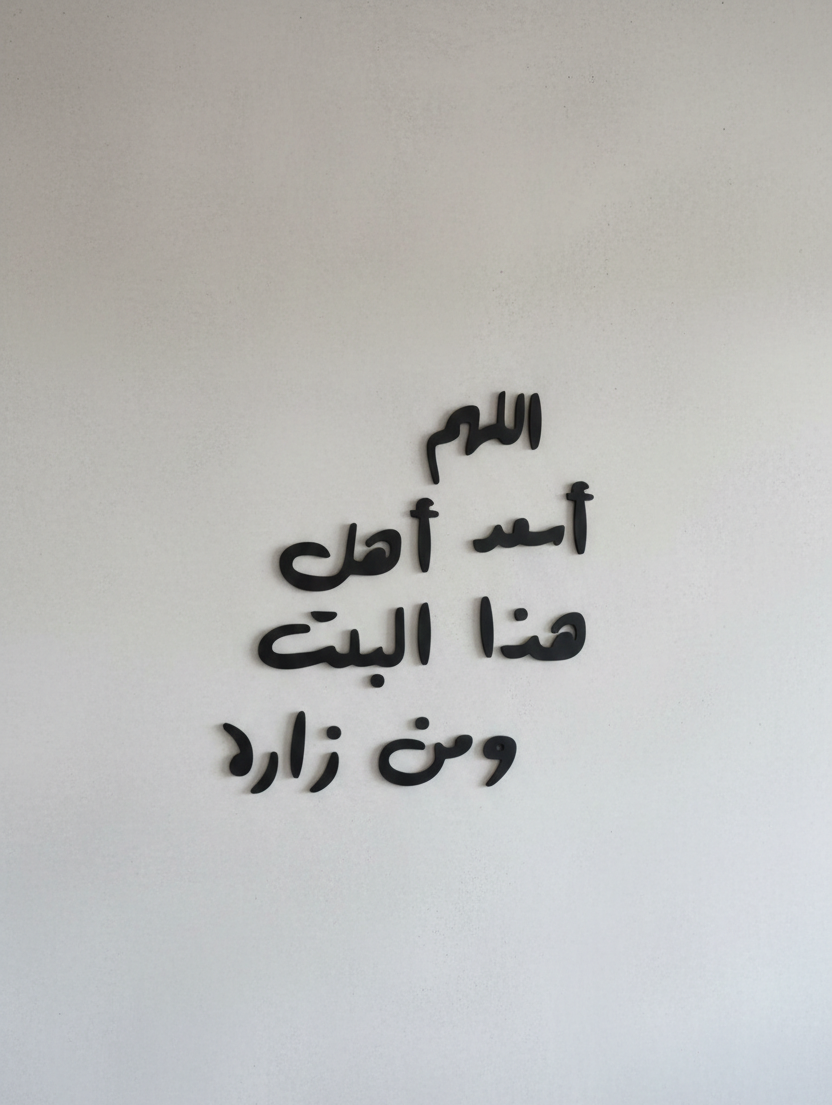 اللهم
أسعد أهل
هذا البيت
ومن زاره